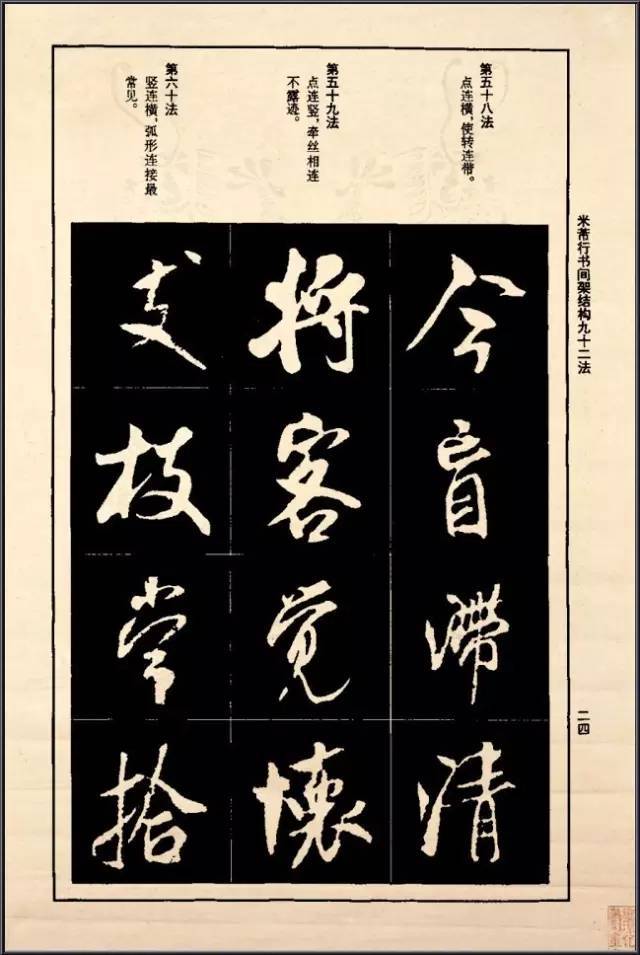 米芾行书间架结构九十二法
二四
第五十八法
点连横,使转连带。
今盲滯清
第五十九法
点连竖,牵丝相连
不露迹。
将客觉懷
第六十法
竖连横,弧形连接最
常见。
支枝
拾